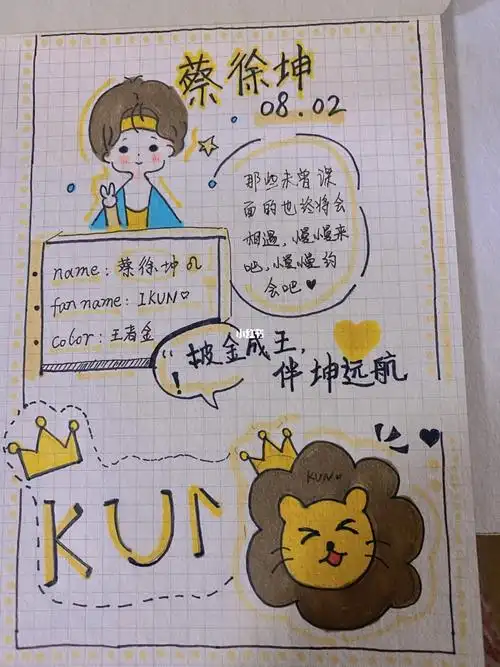 蔡徐坤
08.02
那些未曾谋
面的也终将会
相遇,慢慢来
吧,慢慢约
会吧♥
name:蔡徐坤♌
fan name:IKUN♡
color:王者金
小红书
“披金成王,
伴坤远航
!
KUN
KUN♡